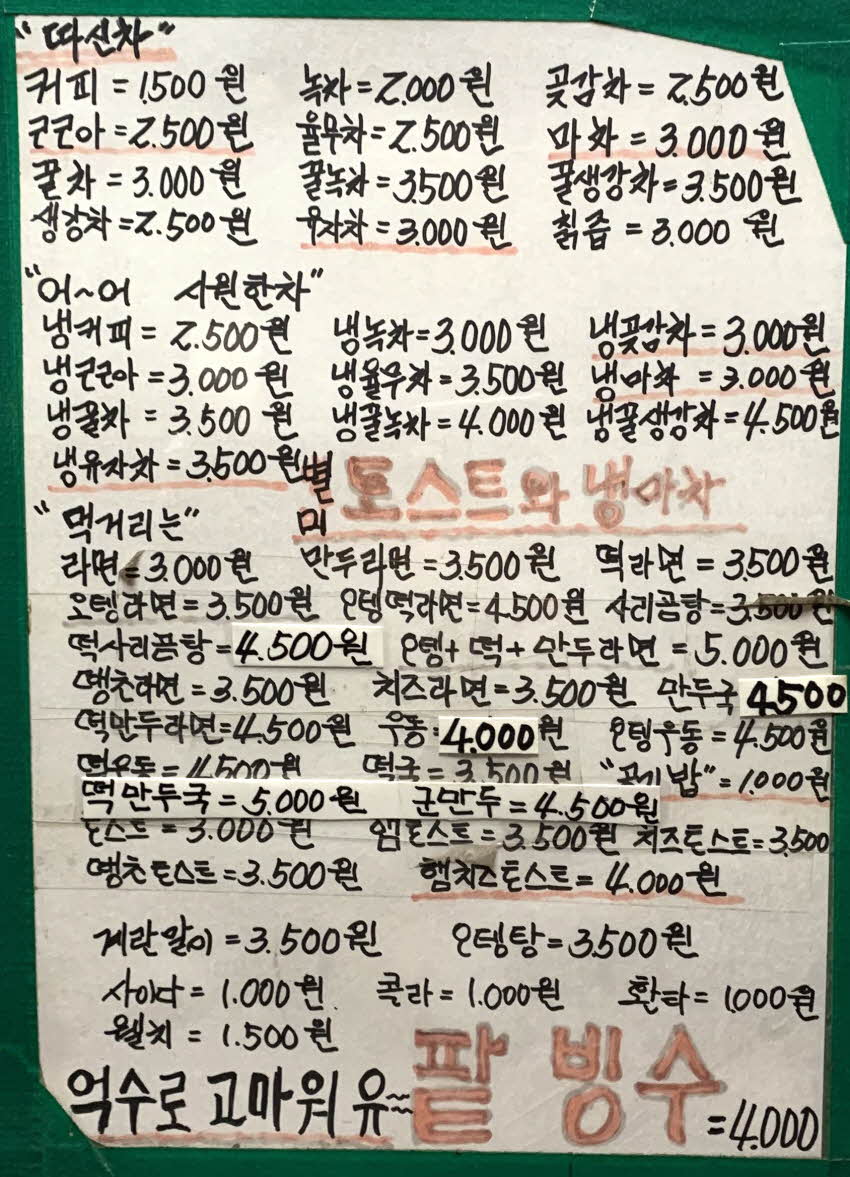 "따신차"
커피 = 1.500 원 녹차 = 2.000 원 곶감차 = 2.500 원
코코아 = 2.500 원 율무차 = 2.500 원 마차 = 3.000 원
꿀차 = 3.000 원 꿀녹차 = 3.500 원 꿀생강차 = 3.500 원
생강차 = 2.500 원 유자차 = 3.000 원 칡즙 = 3.000 원
"어~어 시원한차"
냉커피 = 2.500 원 냉녹차 = 3.000 원 냉곶감차 = 3.000 원
냉코코아 = 3.000 원 냉율무차 = 3.500 원 냉마차 = 3.000 원
냉꿀차 = 3.500 원 냉꿀녹차 = 4.000 원 냉꿀생강차 = 4.500 원
냉유자차 = 3.500 원 별미 토스트와 냉마차
"먹거리는"
라면 = 3.000 원 만두라면 = 3.500 원 떡라면 = 3.500 원
오뎅라면 = 3.500 원 오뎅떡라면 = 4.500 원 사리곰탕 = 3.500 원
떡사리곰탕 = 4.500 원 오뎅 + 떡 + 만두라면 = 5.000 원
땡초라면 = 3.500 원 치즈라면 = 3.500 원 만두국 4.500
떡만두라면 = 4.500 원 우동 = 4.000 원 오뎅우동 = 4.500 원
떡우동 = 4.500 원 떡국 = 3.500 원 "공기밥" = 1.000 원
떡만두국 = 5.000 원 군만두 = 4.500 원
토스트 = 3.000 원 햄토스트 = 3.500 원 치즈토스트 = 3.500
땡초토스트 = 3.500 원 햄치즈토스트 = 4.000 원
계란말이 = 3.500 원 오뎅탕 = 3.500 원
사이다 = 1.000 원 콜라 = 1.000 원 환타 = 1.000 원
웰치 = 1.500 원
억수로 고마워유~~ 팥빙수 = 4.000